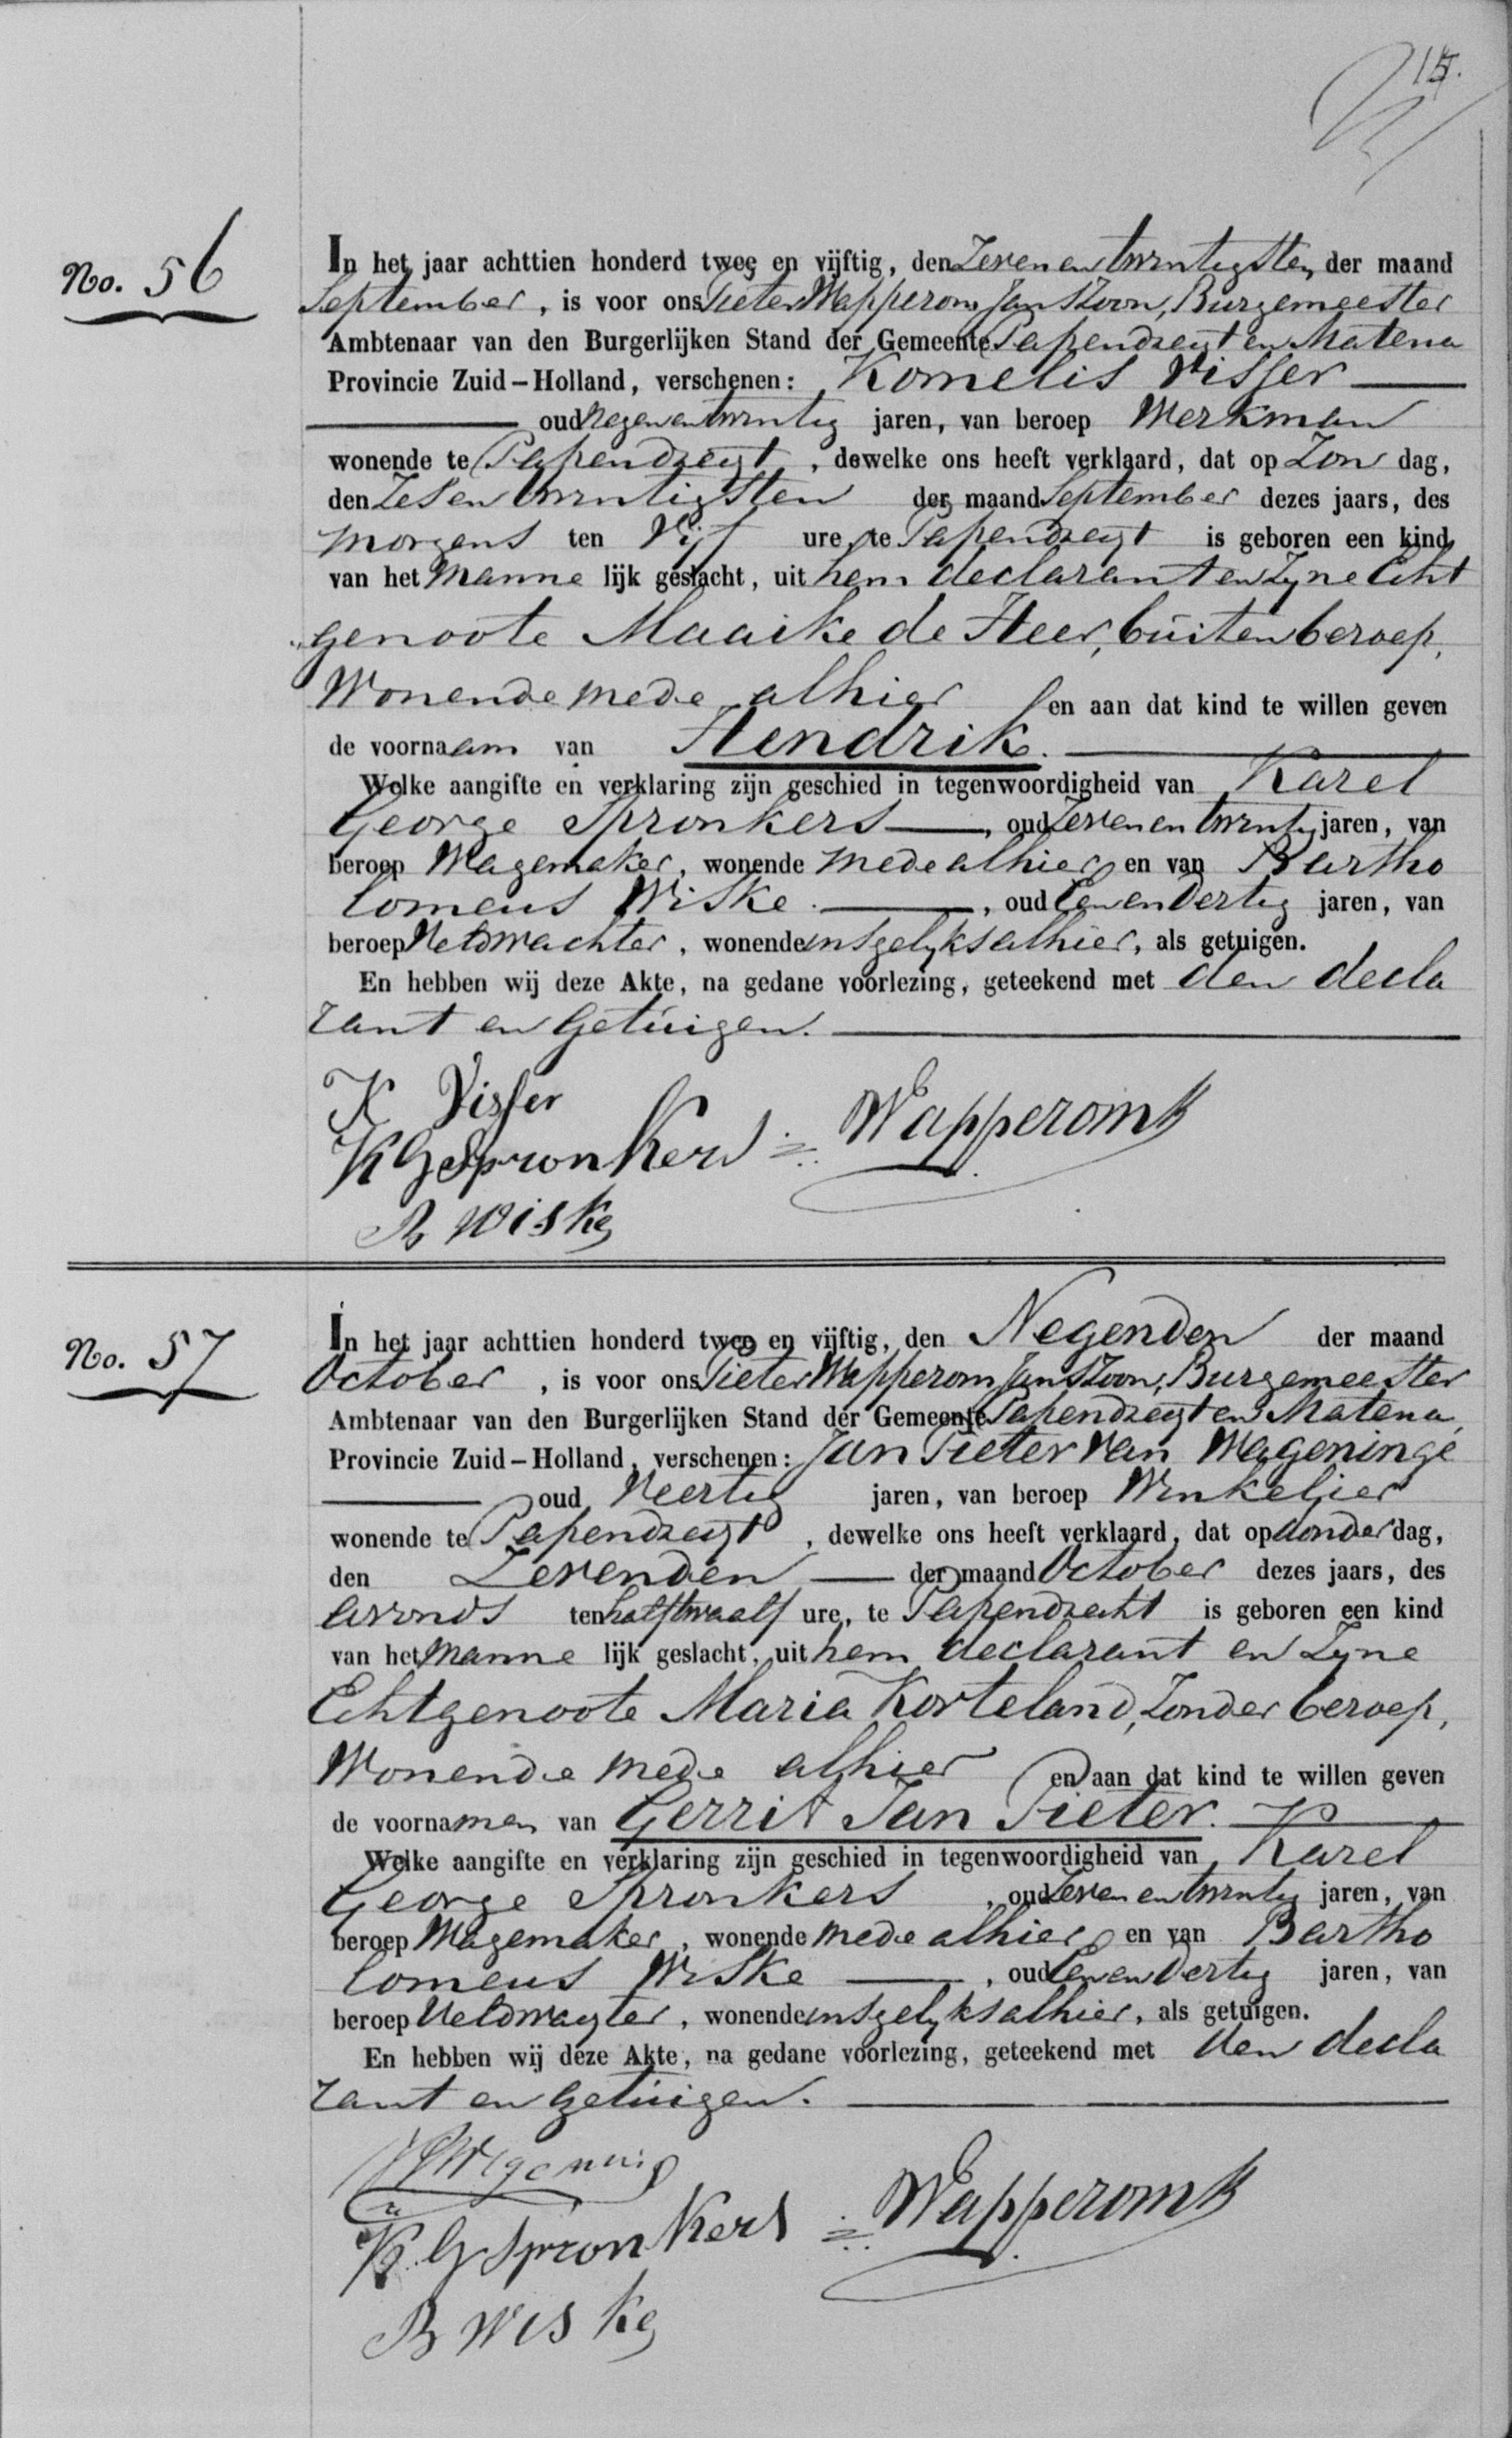 15.
No. 56
In het jaar achttien honderd twee en vijftig, den Zevenentwintigsten der maand
September, is voor ons Pieter Wapperom Janszoon, Burgemeester
Ambtenaar van den Burgerlijken Stand der Gemeente Papendregt en Matena
Provincie Zuid-Holland, verschenen: Kornelis Visser
oud Negenentwintig jaren, van beroep Werkman
wonende te Papendregt, dewelke ons heeft verklaard, dat op Zon dag,
den Zesentwintigsten der maand September dezes jaars, des
morgens ten Vijf ure, te Papendregt is geboren een kind
van het Manne lijk geslacht, uit hem declarant en Zyne Echt
genoote Maaike de Heer, buiten beroep,
Wonende mede alhier en aan dat kind te willen geven
de voornaam van Hendrik.
Welke aangifte en verklaring zijn geschied in tegenwoordigheid van Karel
George Spronkers, oud Zevenentwintig jaren, van
beroep Wagemaker, wonende mede alhier en van Bartho
lomeus Wiske, oud Eenendertig jaren, van
beroep Veldwachter, wonende insgelyks alhier, als getuigen.
En hebben wij deze Akte, na gedane voorlezing, geteekend met den decla
rant en Getuigen.
K Visser
K G Spronkers Wapperom
B Wiske
No. 57
In het jaar achttien honderd twee en vijftig, den Negenden der maand
October, is voor ons Pieter Wapperom Janszoon, Burgemeester
Ambtenaar van den Burgerlijken Stand der Gemeente Papendregt en Matena,
Provincie Zuid-Holland, verschenen: Jan Pieter van Wageninge
oud Veertig jaren, van beroep Winkelier
wonende te Papendregt, dewelke ons heeft verklaard, dat op donder dag,
den Zevenden der maand October dezes jaars, des
avonds ten half twaalf ure, te Papendrecht is geboren een kind
van het Manne lijk geslacht, uit hem declarant en Zyne
Echtgenoote Maria Korteland, Zonder beroep,
Wonende mede alhier en aan dat kind te willen geven
de voornamen van Gerrit Jan Pieter.
Welke aangifte en verklaring zijn geschied in tegenwoordigheid van Karel
George Spronkers, oud Zevenentwintig jaren, van
beroep Wagemaker, wonende mede alhier en van Bartho
lomeus Wiske, oud Eenendertig jaren, van
beroep Veldwagter, wonende insgelyks alhier, als getuigen.
En hebben wij deze Akte, na gedane voorlezing, geteekend met den decla
rant en Getuigen.
K. G Spronkers Wapperom
B Wiske